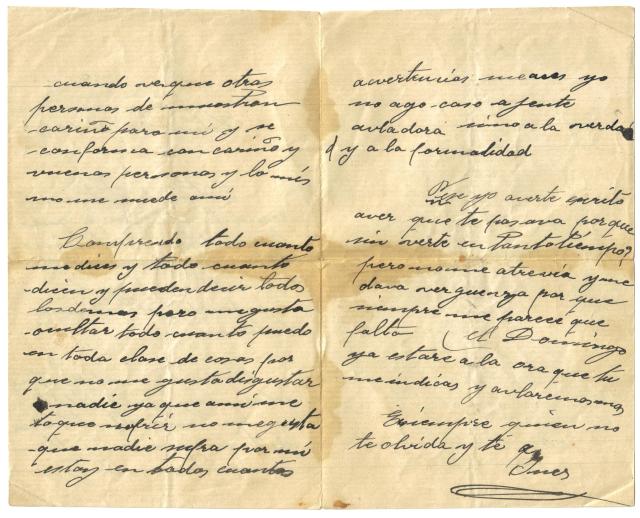 cuando ve que otras
personas de muestran
cariño para mi y se
conforma con cariño y
vuenas personas y lo mis
mo me
Comprendo todo cuanto
me dices y todo cuanto
dicen y pueden decir todos
los demas pero me gusta
ocultar todo cuanto puedo
en toda clase de cosas por
que no me gusta disgustar
a nadie ya que ami me
toque sufrir no me gusta
que nadie sufra por mi
estoy en todos cuantos
advertencias me aces yo
no ago caso a jente
avladora sino a la verdad
y a la formalidad
yo averte escrito
aver que te pasava por que
sin verte en tanto tiempo?
pero no me atrevia y me
dava verguenza por que
siempre me parece que
falto El Domingo
ya estare a la ora que tu
me indicas y avlaremos mas
siempre quien no
te olvida y te
Ines